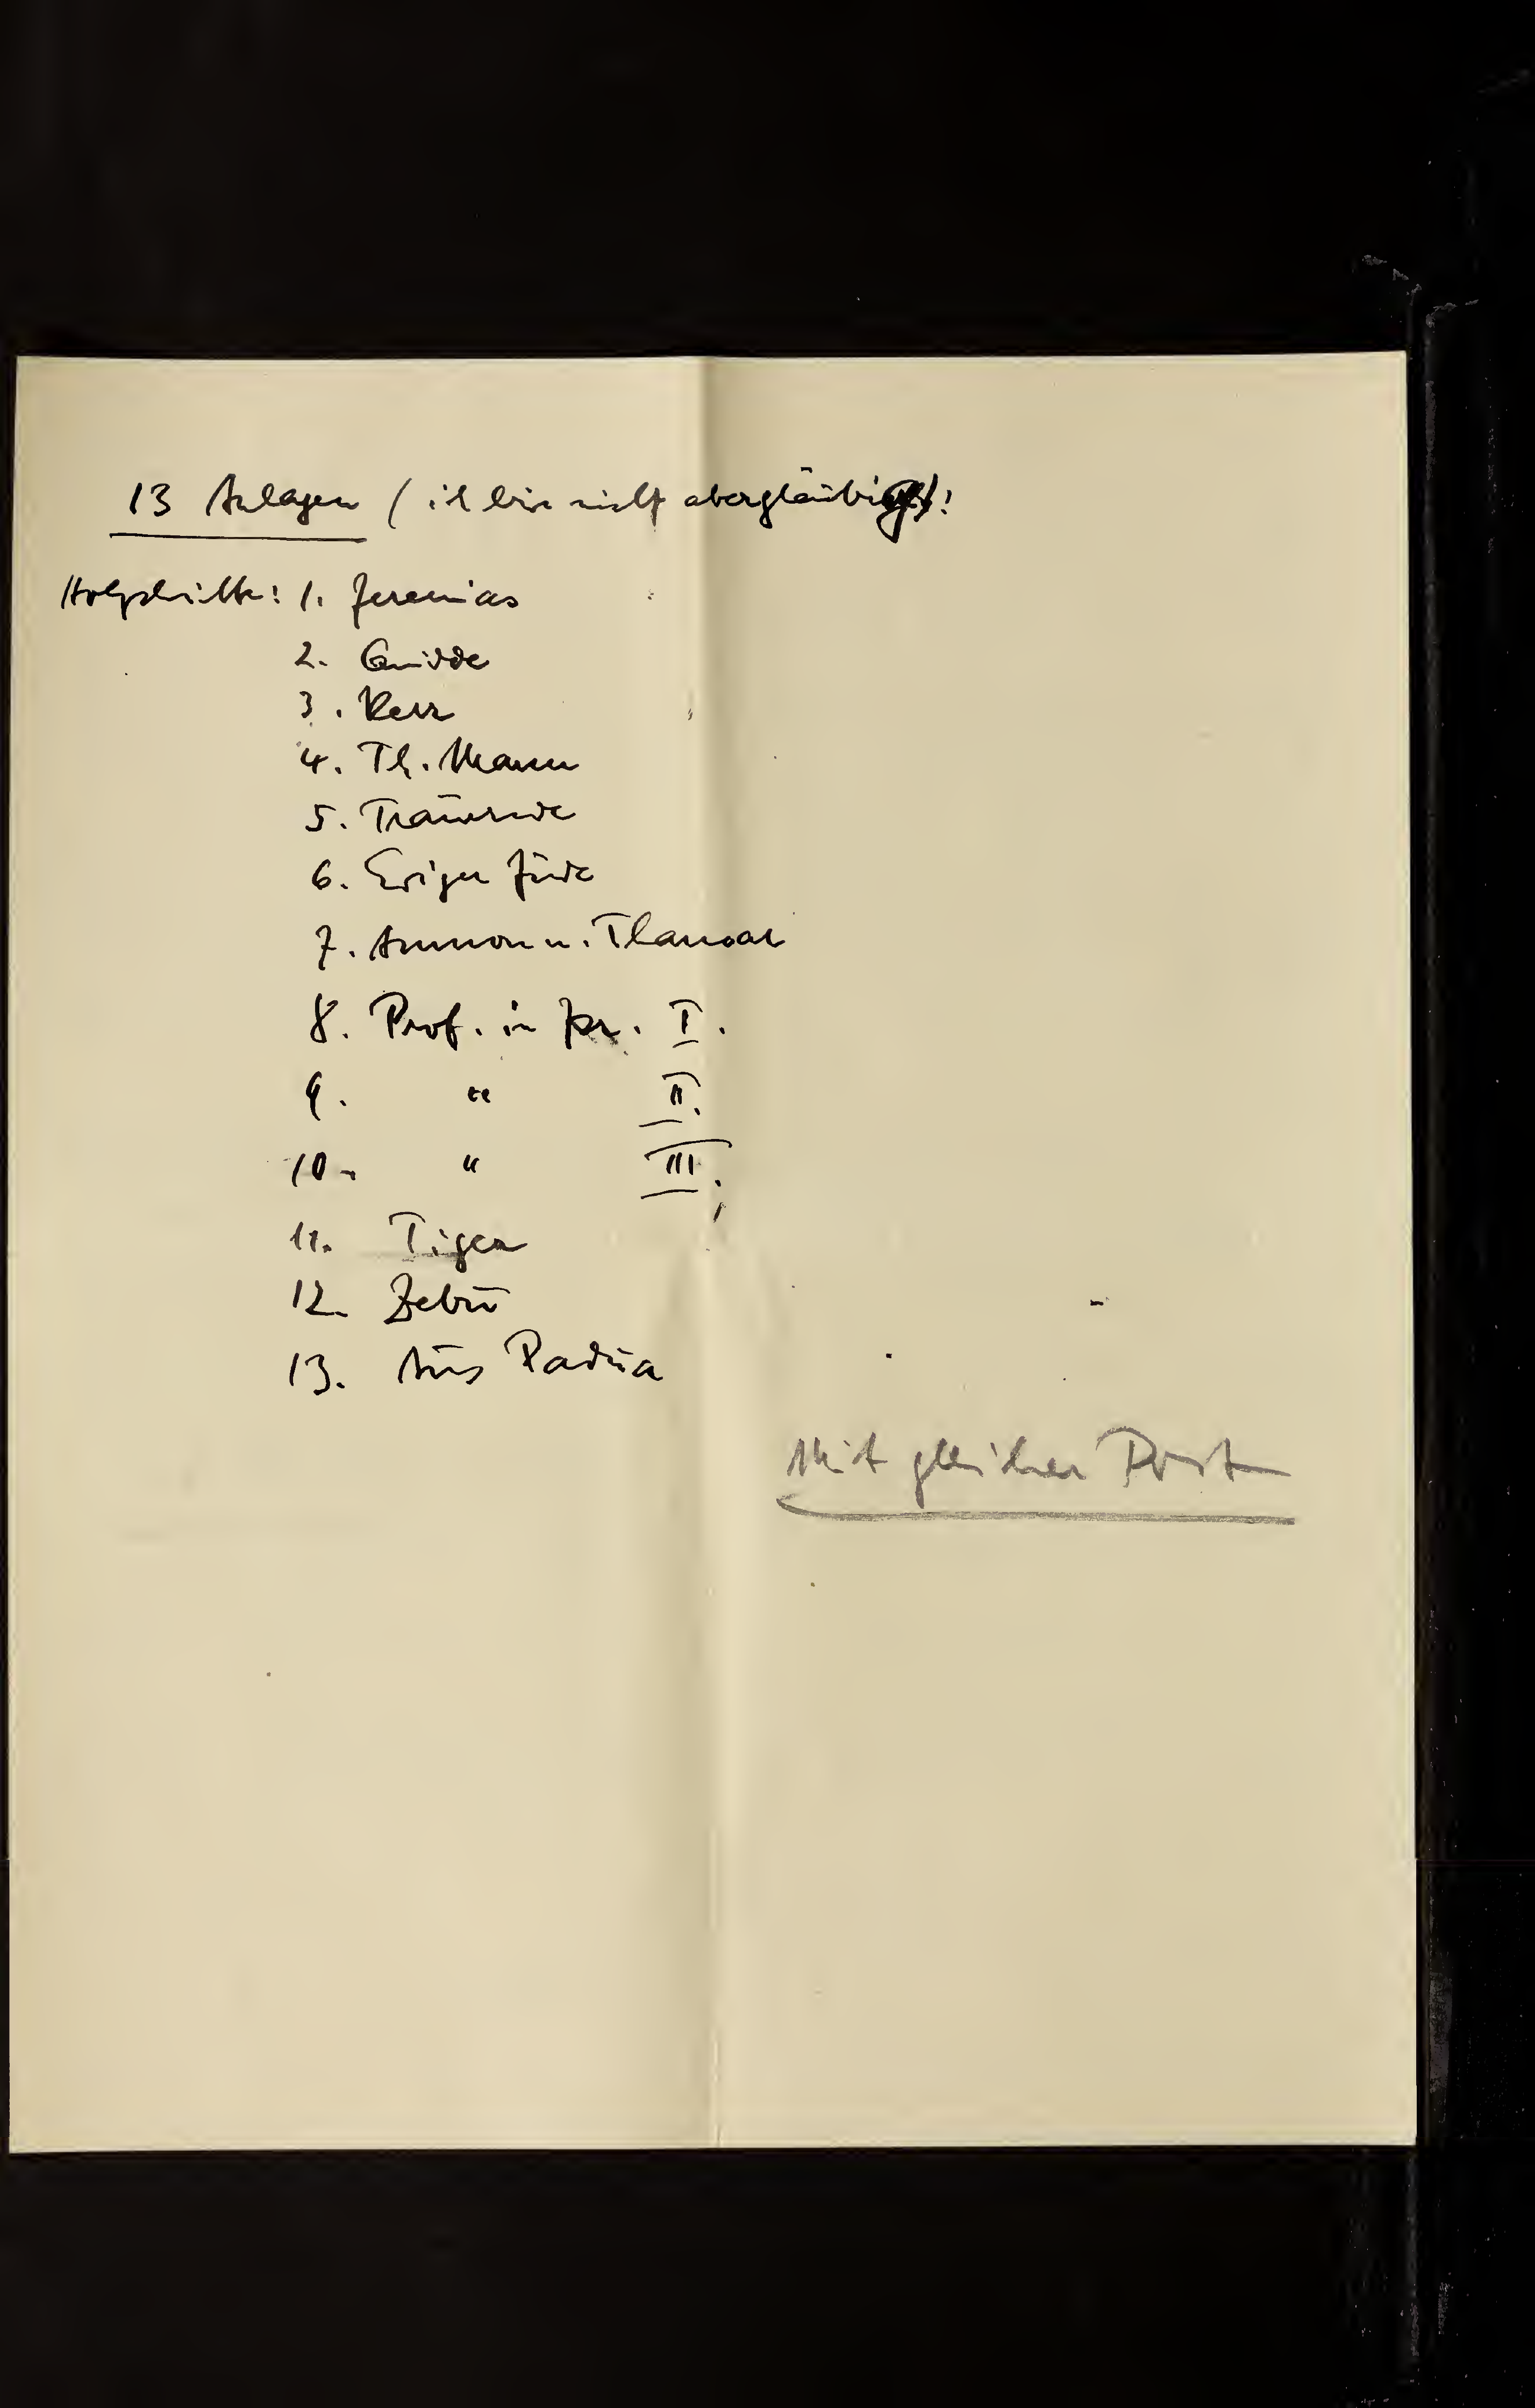 13 Anlagen (ich bin nicht abergläubig)!
Holzschnitte: 1. Jeremias
2. Quidde
3. Kerr
4. Th. Mann
5. Trauernde
6. Ewiger Jude
7. Ammon u. Thamar
8. Prof. in Jer. I.
9. " II.
10. " III.
11. Tiger
12. Zebu
13. Aus Padua
Mit gleicher Post